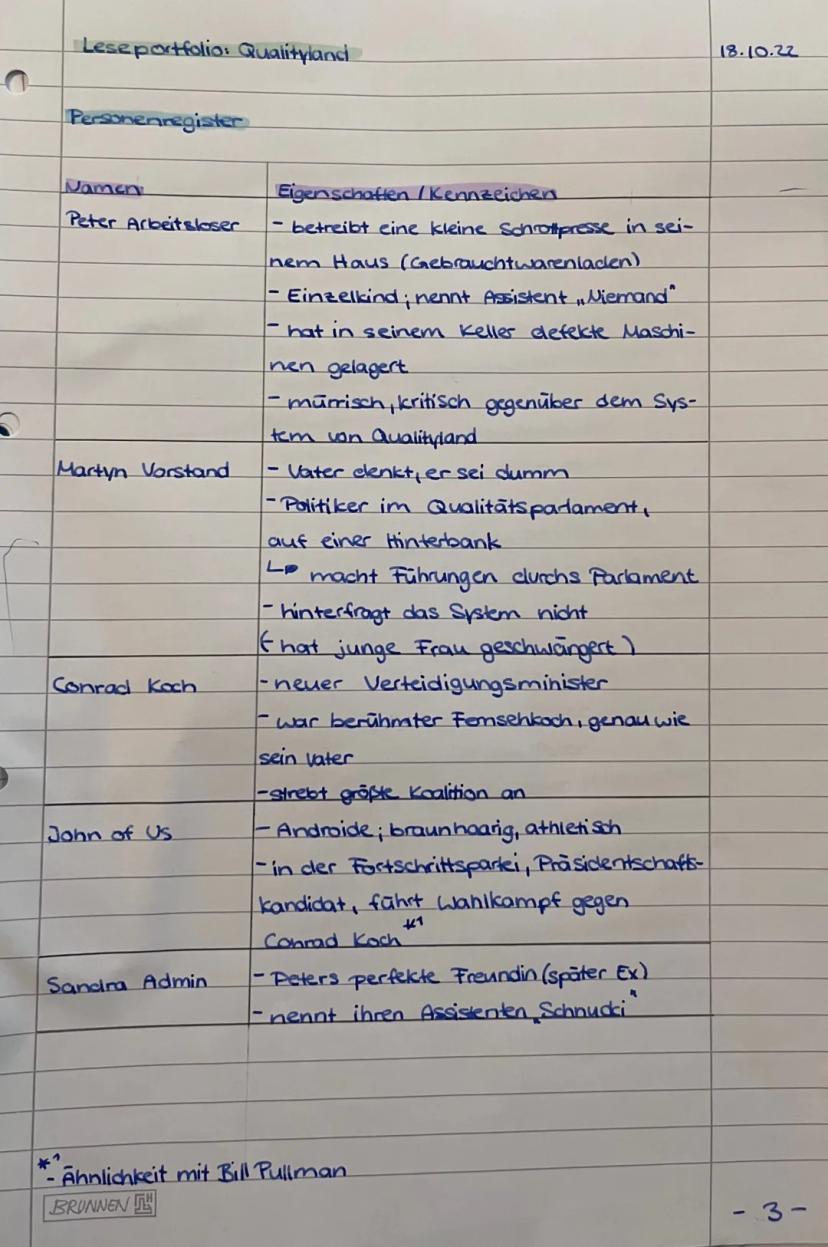 Leseportfolio: Qualityland 18.10.22
Personenregister
Namen Eigenschaften / Kennzeichen
Peter Arbeitsloser - betreibt eine kleine Schrottpresse in sei-
nem Haus (Gebrauchtwarenladen)
- Einzelkind; nennt Assistent „Niemand"
- hat in seinem Keller defekte Maschi-
nen gelagert
- mürrisch, kritisch gegenüber dem Sys-
tem von Qualityland
Martyn Vorstand - Vater denkt, er sei dumm
- Politiker im Qualitätsparlament,
auf einer Hinterbank
↳ macht Führungen durchs Parlament
- hinterfragt das System nicht
(- hat junge Frau geschwängert)
Conrad Koch - neuer Verteidigungsminister
- war berühmter Fernsehkoch, genau wie
sein Vater
- strebt größte Koalition an
John of Us - Androide; braunhaarig, athletisch
- in der Fortschrittspartei, Präsidentschafts-
kandidat, führt Wahlkampf gegen
Conrad Koch *1
Sandra Admin - Peters perfekte Freundin (später Ex)
- nennt ihren Assistenten „Schnucki"
*1 - Ähnlichkeit mit Bill Pullman
BRUNNEN
- 3 -